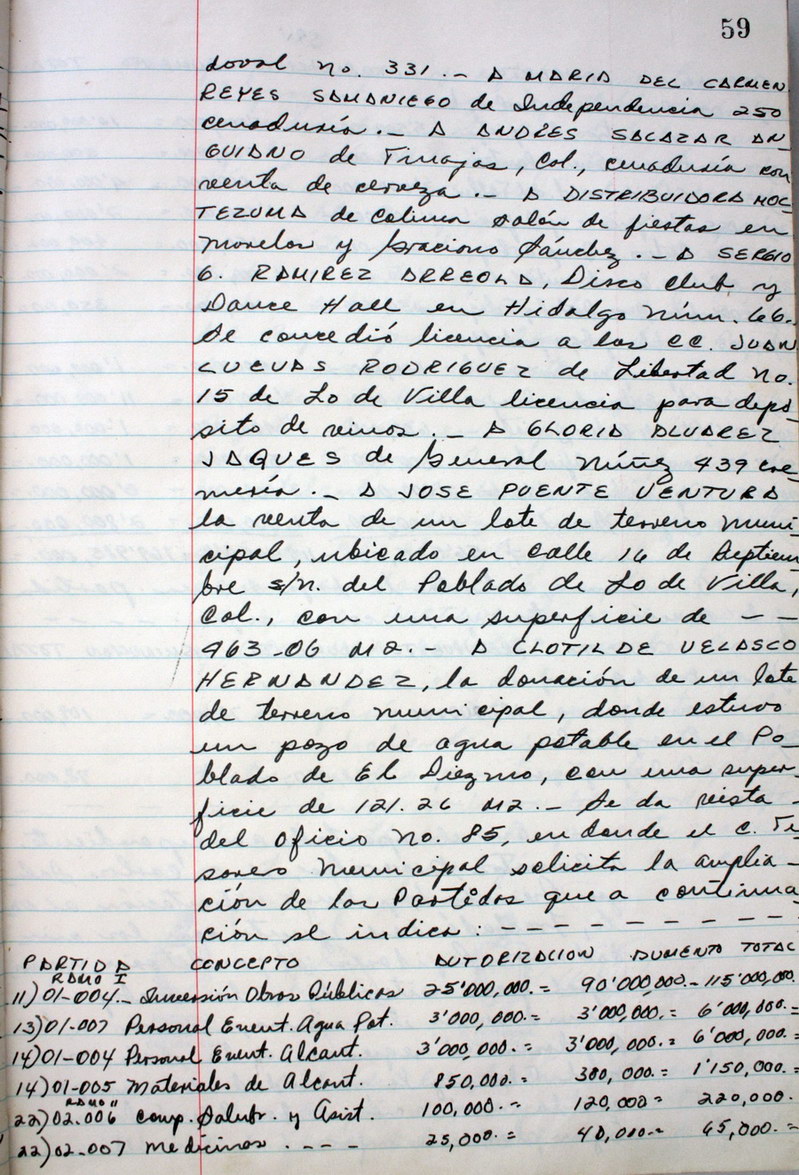 59
doval No. 331.- A MARIA DEL CARMEN
REYES SAMANIEGO de Independencia 250
cenaduría.- A ANDRES SALAZAR AN
GUIANO de Tinajas, Col., cenaduría con
venta de cerveza.- A DISTRIBUIDORA MOC
TEZUMA de Colima salón de fiestas en
Morelos y Graciano Sánchez.- A SERGIO
G. RAMIREZ ARREOLA, Disco Club y
Dance Hall en Hidalgo Núm. 66.
Se concedió licencia a los CC. JUAN
CUEVAS RODRIGUEZ de Libertad No.
15 de Lo de Villa licencia para depó
sito de vinos.- A GLORIA ALVAREZ
JAQUES de General Núñez 439 cre
mería.- A JOSE PUENTE VENTURA
la venta de un lote de terreno muni
cipal, ubicado en calle 16 de Septiem
bre s/n. del Poblado de Lo de Villa,
Col., con una superficie de - -
463-06 M2.- A CLOTILDE VELASCO
HERNANDEZ, la donación de un lote
de terreno municipal, donde estuvo
un pozo de agua potable en el Po
blado de El Diezmo, con una super
ficie de 121.26 M2.- Se da vista -
del Oficio No. 85, en donde el C. Te
sorero Municipal solicita la amplia-
ción de las Partidas que a continua
ción se indica: - - - - - - - - -
PARTIDA CONCEPTO AUTORIZACION AUMENTO TOTAL
RAMO I
11) 01-004.- Inversión Obras Públicas 25'000,000.= 90'000,000.- 115'000,000.
13) 01-007 Personal Event. Agua Pot. 3'000,000.= 3'000,000.= 6'000,000.=
14) 01-004 Personal Event. Alcant. 3'000,000.= 3'000,000.= 6'000,000.=
14) 01-005 Materiales de Alcant. 850,000.= 300,000.= 1'150,000.=
RAMO II
22) 02.006 Comp. Salubr. y Asist. 100,000.= 120,000= 220,000.
22) 02-007 Medicinas . - - - 25,000.= 40,000.= 65,000.=